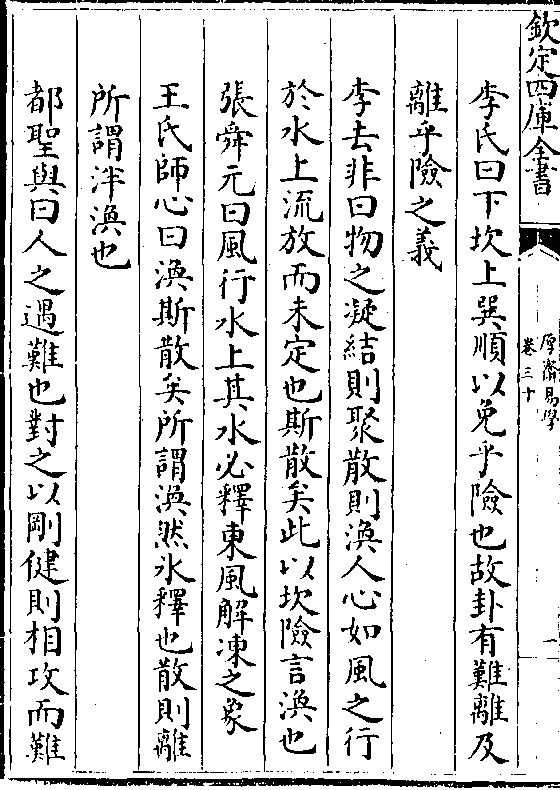 欽定四庫全書
厚齋易學
卷三十
一
李氏曰下坎上巽順以免乎險也故卦有難離及
離乎險之義
李去非曰物之凝結則聚散則渙人心如風之行
於水上流放而未定也斯散矣此以坎險言渙也
張舜元曰風行水上其水必釋東風解凍之象
王氏師心曰渙斯散矣所謂渙然氷釋也散則離
所謂泮渙也
都聖與曰人之遇難也對之以剛健則相攻而難